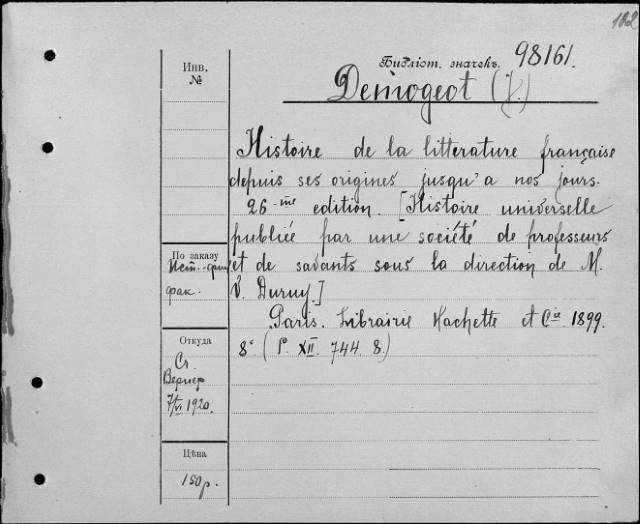 182
Инв.
№
Библіот. значекъ. 98161.
Demogeot (J.)
Histoire de la litterature française
depuis ses origines jusqu'a nos jours.
26-me edition. [Histoire universelle
publiée par une société de professeurs
et de savants sous la direction de M.
V. Duruy.]
Paris. Librairie Hachette et Cie. 1899.
8° (P. XII. 744. 8.)
По заказу
Ист.-фил
фак.
Откуда
Ст.
Вернер
7/VI 1920.
Цѣна
150 р.